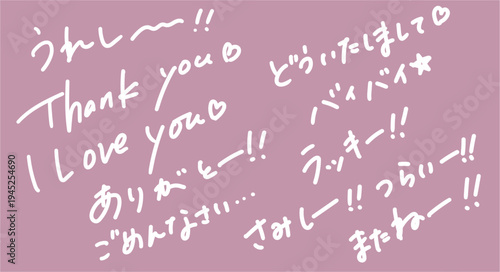 うれしー!!
Thank you♡
I Love you♡
ありがとー!!
ごめんなさい...
どういたしまして♡
バイバイ★
ラッキー!!
さみしー!!
つらいー!!
またねー!!
Adobe Stock
Adobe Stock | #1945254690